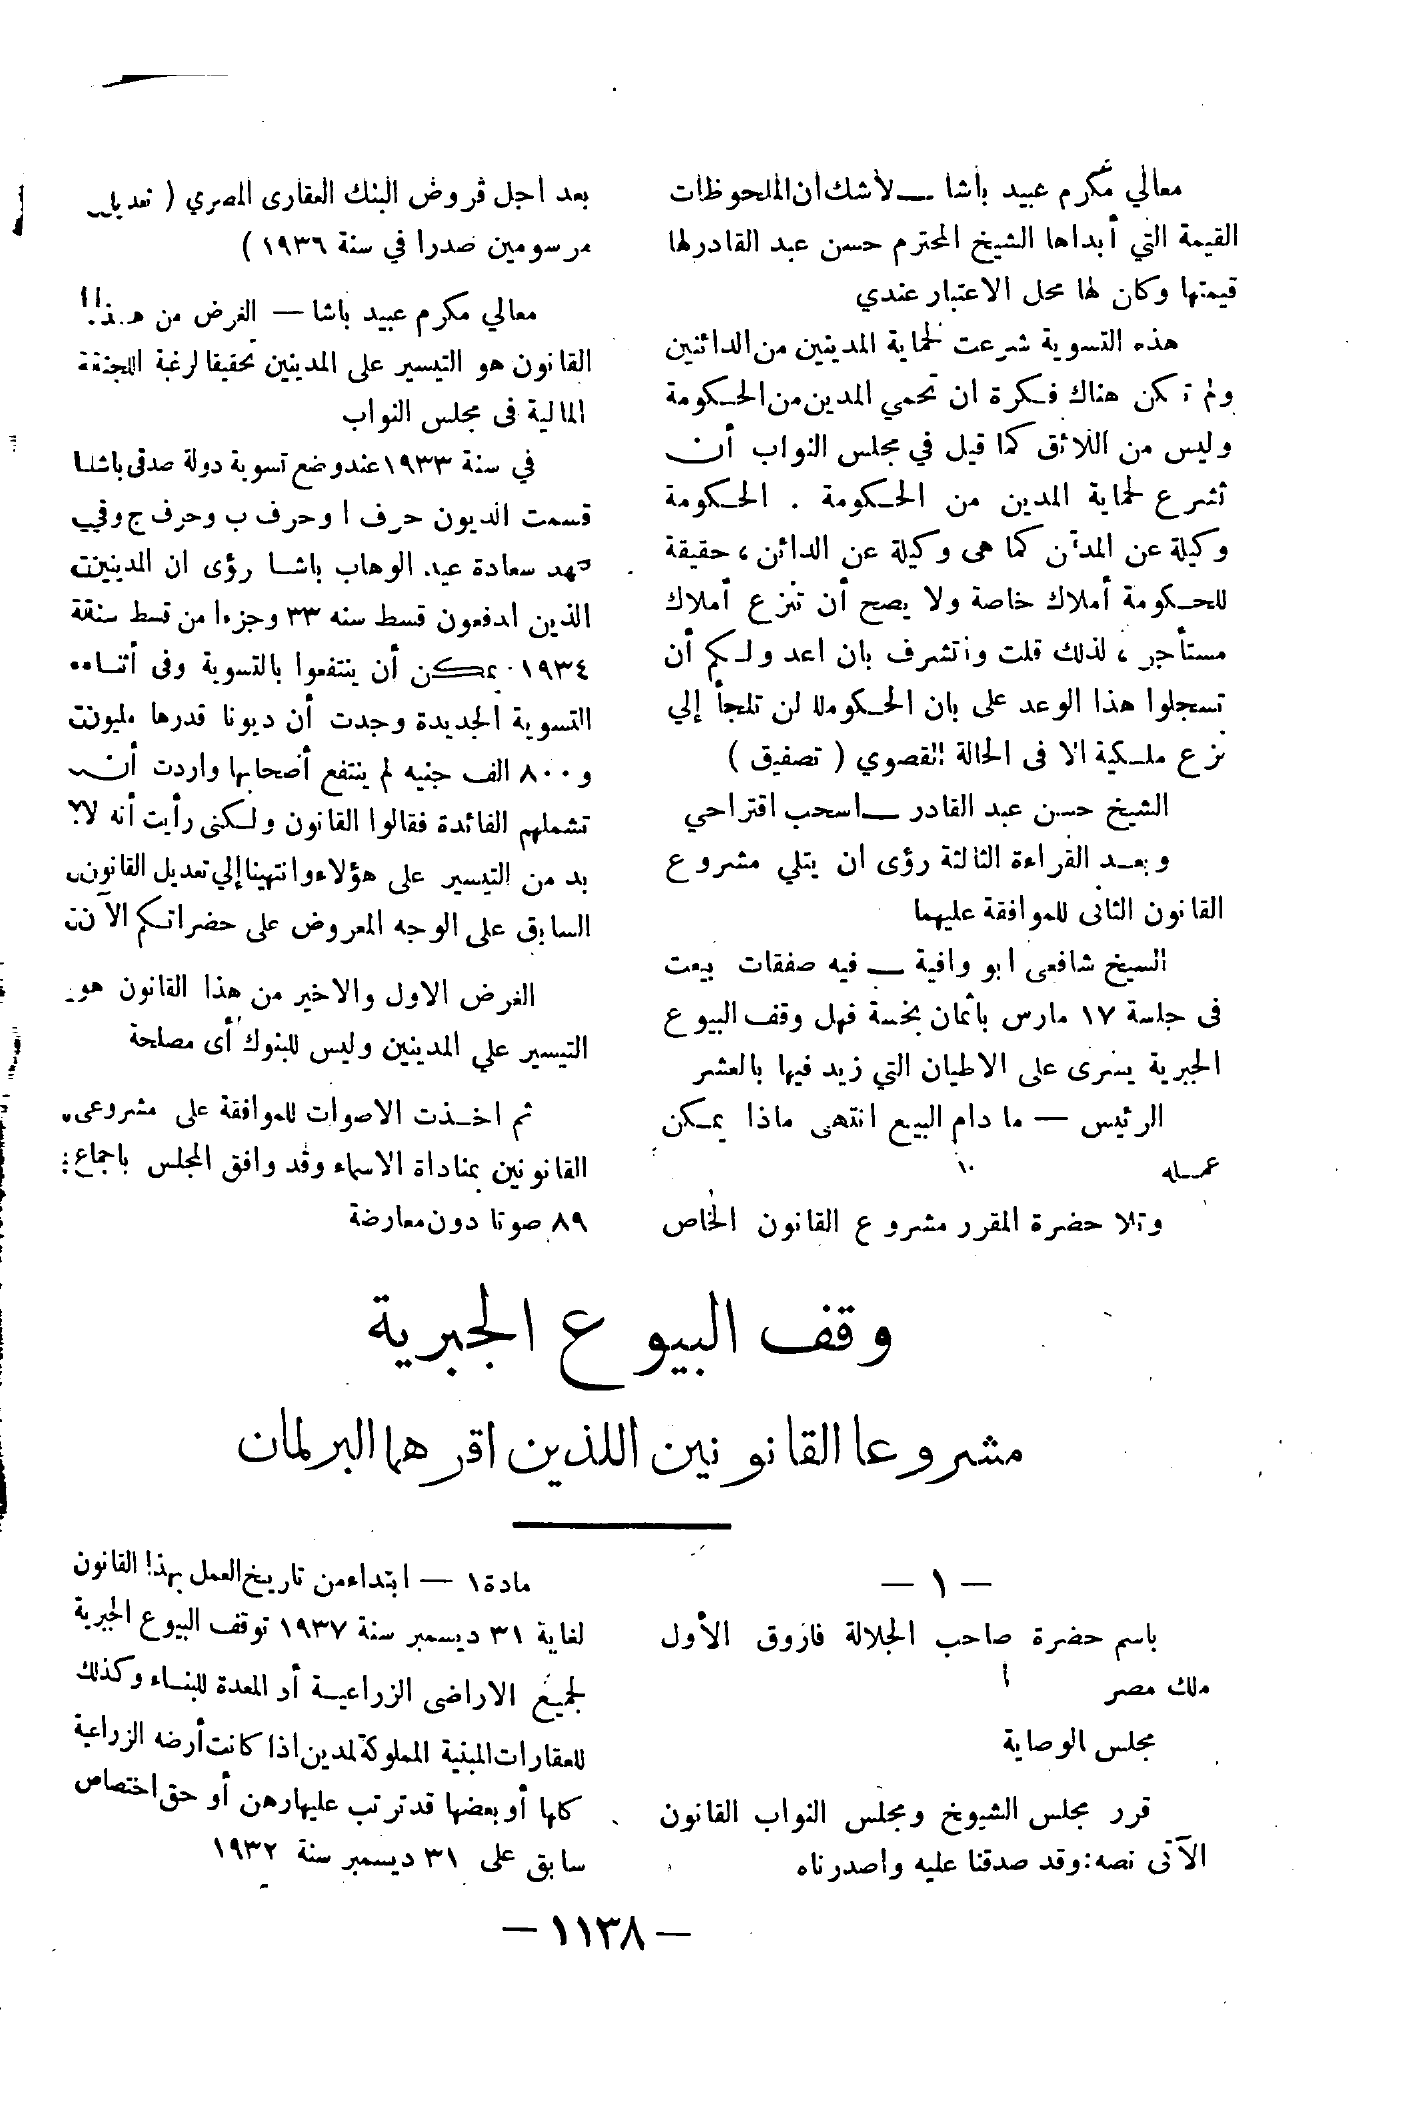 معالي مكرم عبيد باشا — لاشك ان الملحوظات
القيمة التي أبداها الشيخ المحترم حسن عبد القادر لها
قيمتها وكان لها محل الاعتبار عندي
هذه التسوية شرعت لحماية المدينين من الدائنين
ولم تكن هناك فكرة ان تحمي المدين من الحكومة
وليس من اللائق كما قيل في مجلس النواب أن
تشرع لحماية المدين من الحكومة . الحكومة
وكيلة عن المدين كما هى وكيلة عن الدائن ، حقيقة
للحكومة أملاك خاصة ولا يصح أن تنزع أملاك
مستأجر ، لذلك قلت واتشرف بان اعد ولكم أن
تسجلوا هذا الوعد على بان الحكومة لن تلجأ إلي
نزع ملكية الا فى الحالة القصوي ( تصفيق )
الشيخ حسن عبد القادر — اسحب اقتراحي
وبعد القراءة الثالثة رؤى ان يتلي مشروع
القانون الثانى للموافقة عليهما
الشيخ شافعى ابو وافية — فيه صفقات بيعت
فى جلسة ١٧ مارس بأثمان بخسة فهل وقف البيوع
الجبرية يسرى على الاطيان التي زيد فيها بالعشر
الرئيس — ما دام البيع انتهى ماذا يمكن
عمله
وتلا حضرة المقرر مشروع القانون الخاص
بعد اجل قروض البنك العقارى المصري ( تعديل
مرسومين صدرا في سنة ١٩٣٦ )
معالي مكرم عبيد باشا — الغرض من هذا
القانون هو التيسير على المدينين تحقيقا لرغبة اللجنة
المالية فى مجلس النواب
في سنة ١٩٣٣ عند وضع تسوية دولة صدقى باشا
قسمت الديون حرف ا وحرف ب وحرف ج وفي
عهد سعادة عبد الوهاب باشا رؤى ان المدينين
الذين ادفعون قسط سنه ٣٣ وجزءا من قسط سنة
١٩٣٤ يمكن أن ينتفعوا بالتسوية وفى أثناء
التسوية الجديدة وجدت أن ديونا قدرها مليون
و٨٠٠ الف جنيه لم ينتفع أصحابها واردت أن
تشملهم الفائدة فقالوا القانون ولكنى رأيت أنه لا
بد من التيسير على هؤلاء وانتهينا إلي تعديل القانون
السابق على الوجه المعروض على حضراتكم الآن
الغرض الاول والاخير من هذا القانون هو
التيسير علي المدينين وليس للبنوك أى مصلحة
ثم اخذت الاصوات للموافقة على مشروعى
القانونين بمناداة الاسماء وقد وافق المجلس باجماع
٨٩ صوتا دون معارضة
وقف البيوع الجبرية
مشروعا القانونين اللذين اقرهما البرلمان
— ١ —
باسم حضرة صاحب الجلالة فاروق الأول
ملك مصر
مجلس الوصاية
قرر مجلس الشيوخ ومجلس النواب القانون
الآتى نصه : وقد صدقنا عليه واصدرناه
مادة ١ — ابتداء من تاريخ العمل بهذا القانون
لغاية ٣١ ديسمبر سنة ١٩٣٧ توقف البيوع الجبرية
لجميع الاراضى الزراعية أو المعدة للبناء وكذلك
للعقارات المبنية المملوكة لمدين اذا كانت أرضه الزراعية
كلها أو بعضها قد ترتب عليها رهن أو حق اختصاص
سابق على ٣١ ديسمبر سنة ١٩٣٢
— ١١٣٨ —